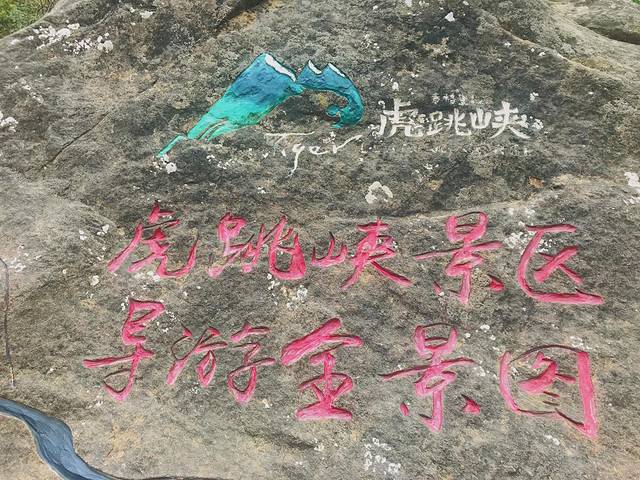 虎跳峡
Tiger
虎跳峡景区
导游全景图